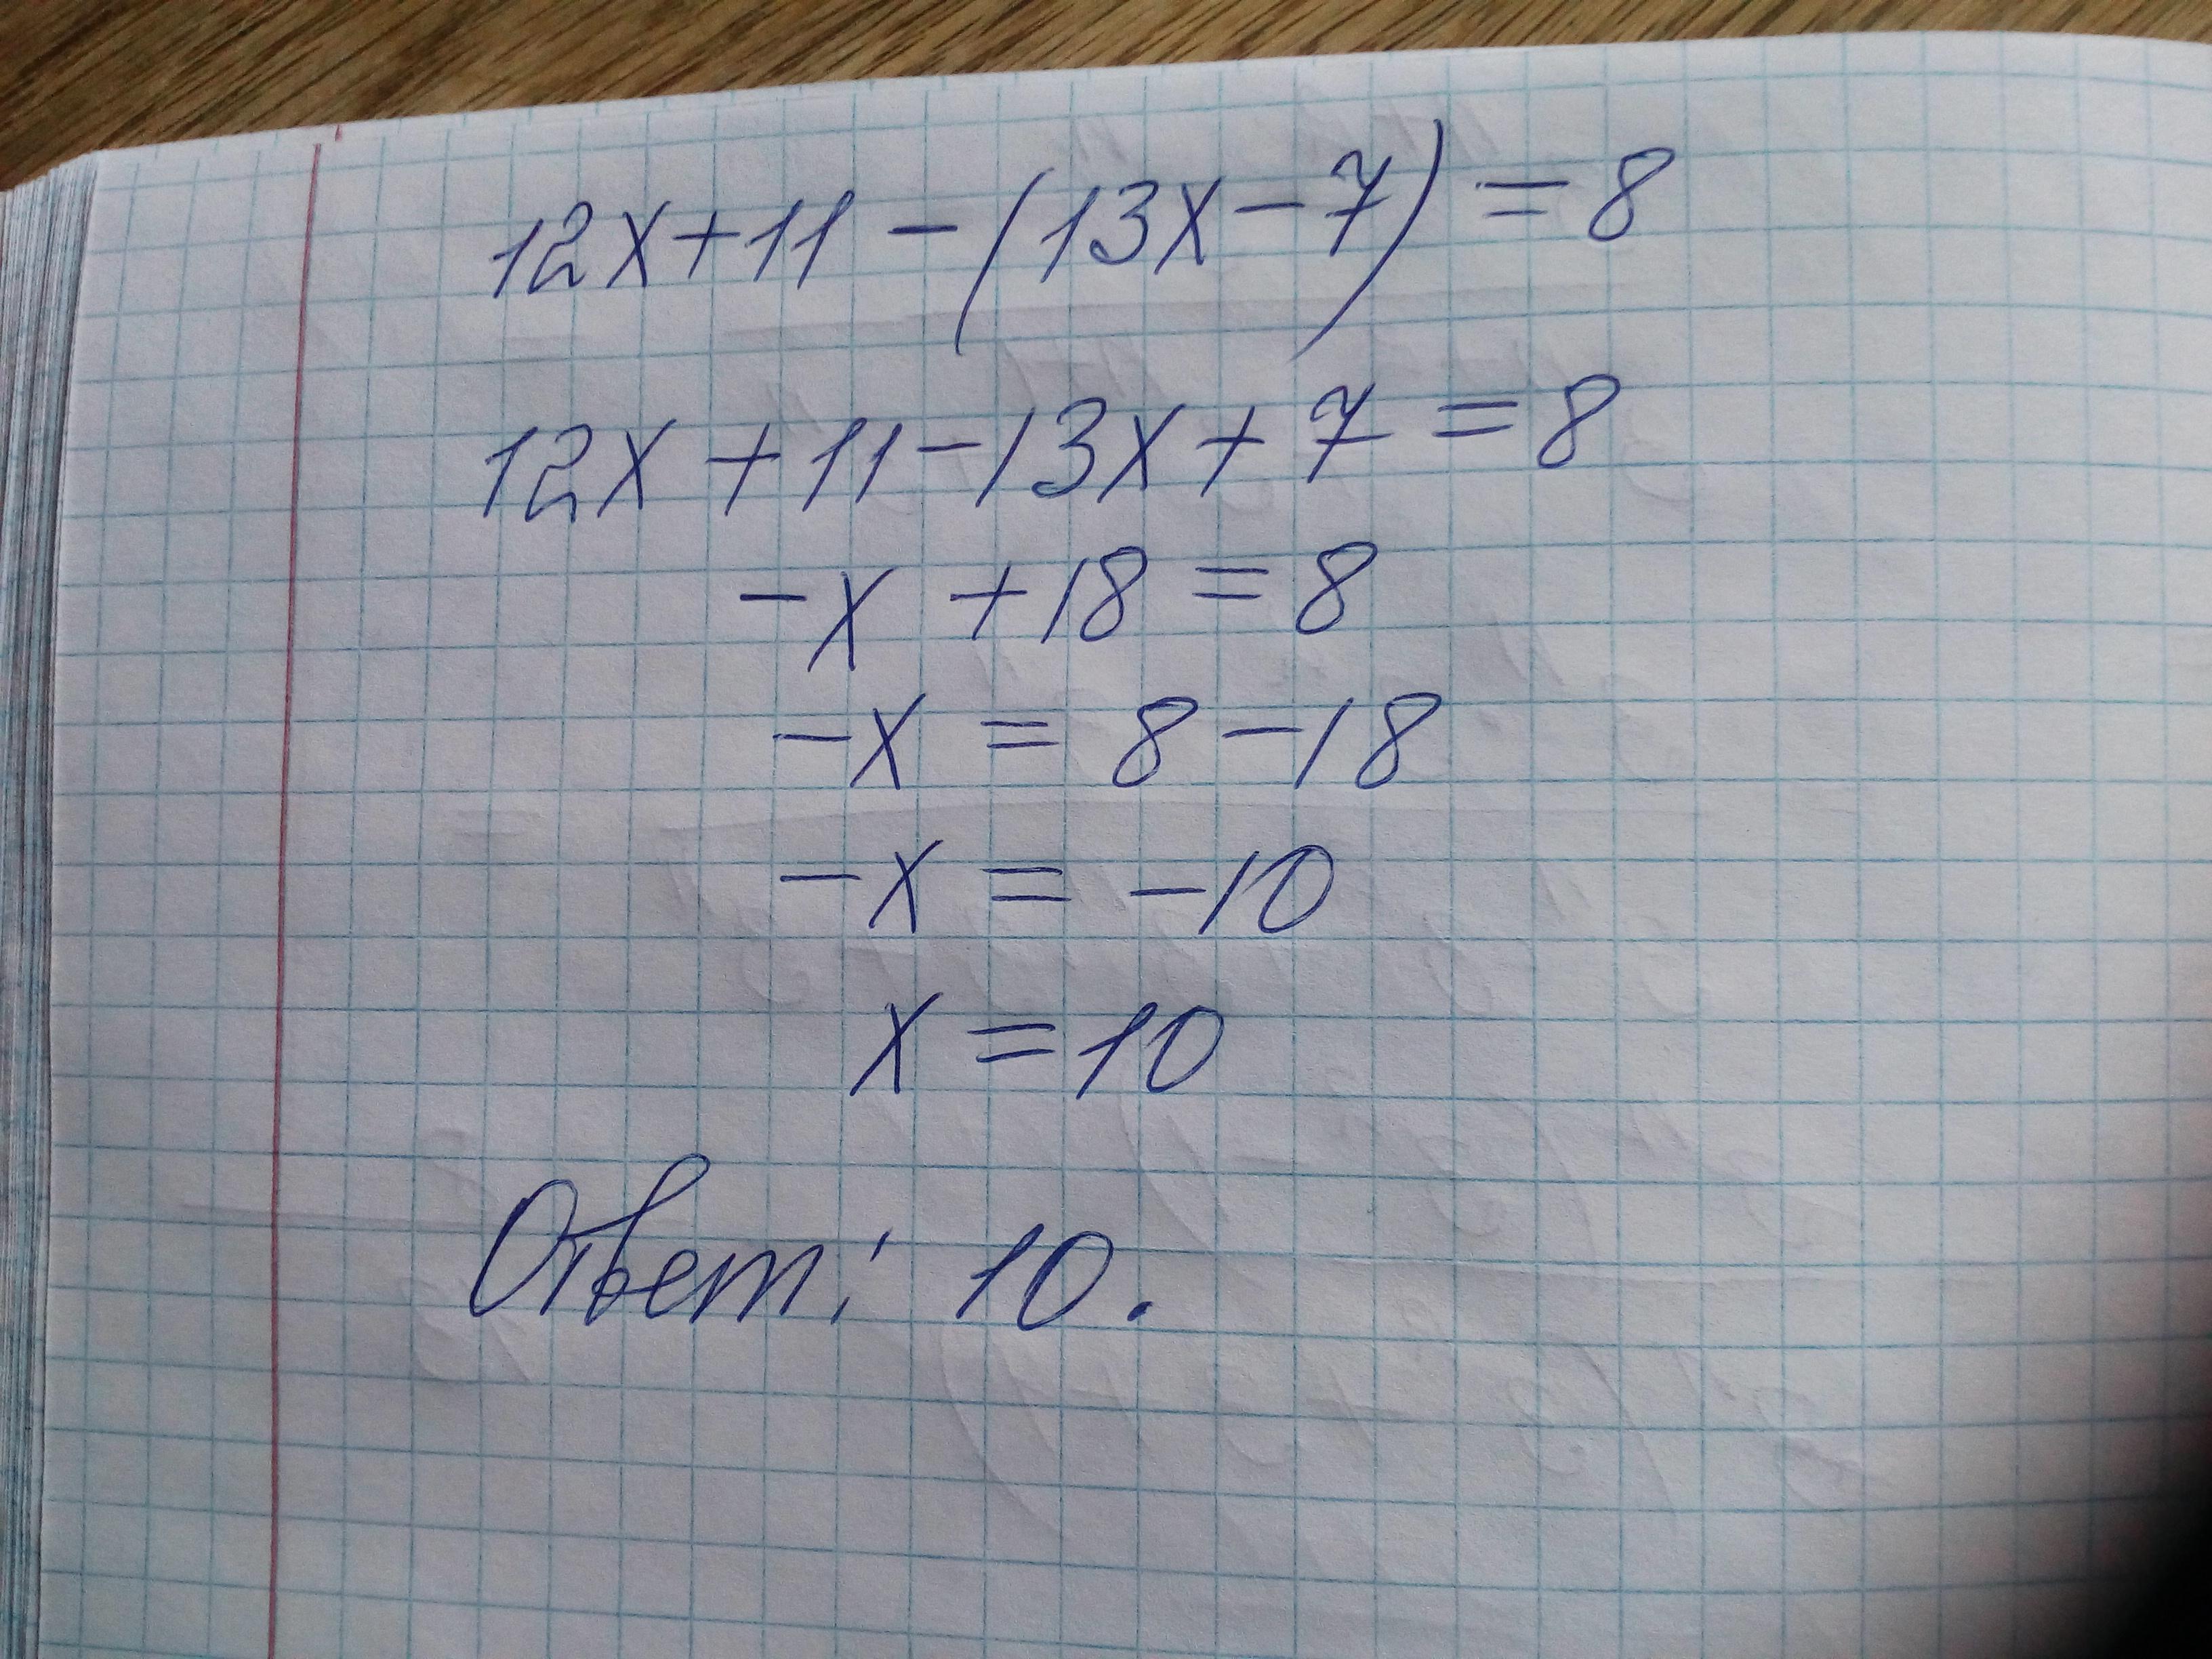 12x+11-(13x-7)=8
12x+11-13x+7=8
-x+18=8
-x=8-18
-x=-10
x=10
Ответ: 10.